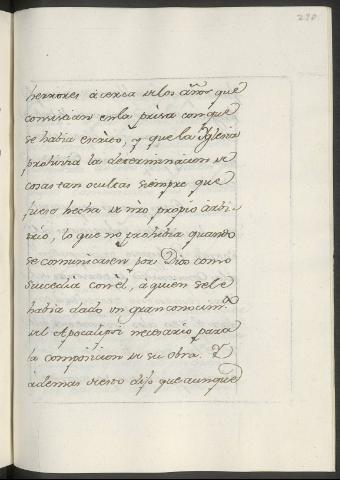 290
herrores àcerca de los años que
consistian en la prisa con que
se habia escrito, y que la Yglesia
prohivia la determinacion de
cosas tan ocultas siempre que
fuese hecha de nro propio arbi-
trio, lo que no prohibia quando
se comunicasen por Dios como
sucedia con èl, à quien se le
habia dado un gran conocim.to
del Apocalipsi necesario para
la composicion de su obra. Y
ademas desto dijo que aunque